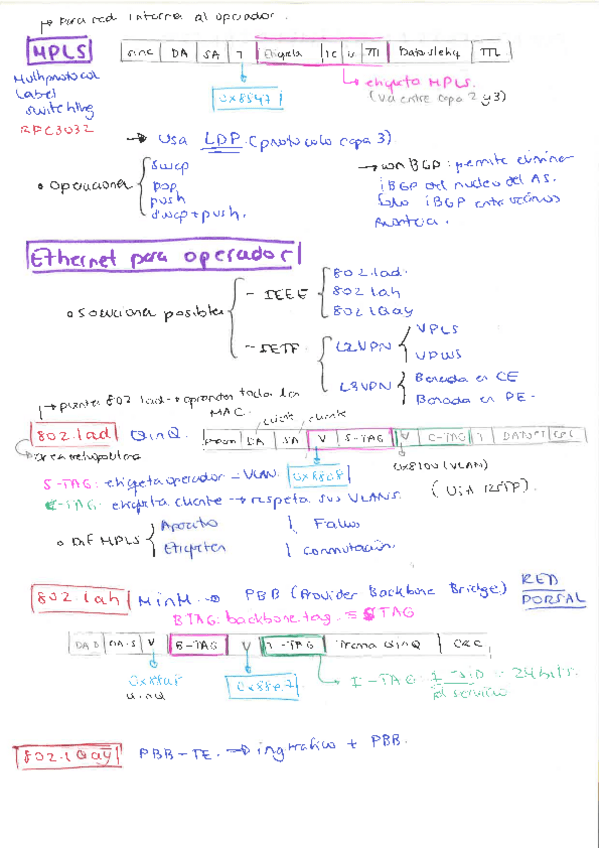 → Para red interna al operador.
MPLS
sinc | DA | SA | T | Etiqueta | TC | S | TTL | Datos/ethq | TTL
Multiprotocol
Label
Switching
RFC3032
0x8847
→ etiqueta MPLS.
(va entre capa 2 y 3)
→ Usa LDP (protocolo capa 3)
• Operaciones
swap
pop
push
swap + push.
→ con BGP: permite eliminar
iBGP del nucleo del AS.
Solo iBGP entre vecinos
frontera.
Ethernet para operador
• Soluciones posibles
- IEEE
802.1ad.
802.1ah
802.1Qay
- IETF
L2VPN
VPLS
VPWS
L3VPN
Basada en CE
Basada en PE.
802.1ad → aprender todas las
MAC.
cliente cliente
802.1ad QinQ.
DA | SA | V | S-TAG | V | C-TAG | T | DATOS | CRC
Area metropolitana
0x88a8
0x8100 (VLAN)
S-TAG: etiqueta operador - VLAN.
C-TAG: etiqueta cliente → respeta sus VLANs.
(Usa RSTP).
• Dif MPLS
Etiquetas
Conmutación.
802.1ah MinM. → PBB (Provider Backbone Bridge)
RED
PORTAL
BTAG: backbone tag. = STAG
V | B-TAG | V | I-TAG | Trama QinQ | CRC
0x88a8
0x88e7
→ I-TAG: I-SID = 24 bits.
id servicio
802.1Qay PBB-TE. → ing trafico + PBB.